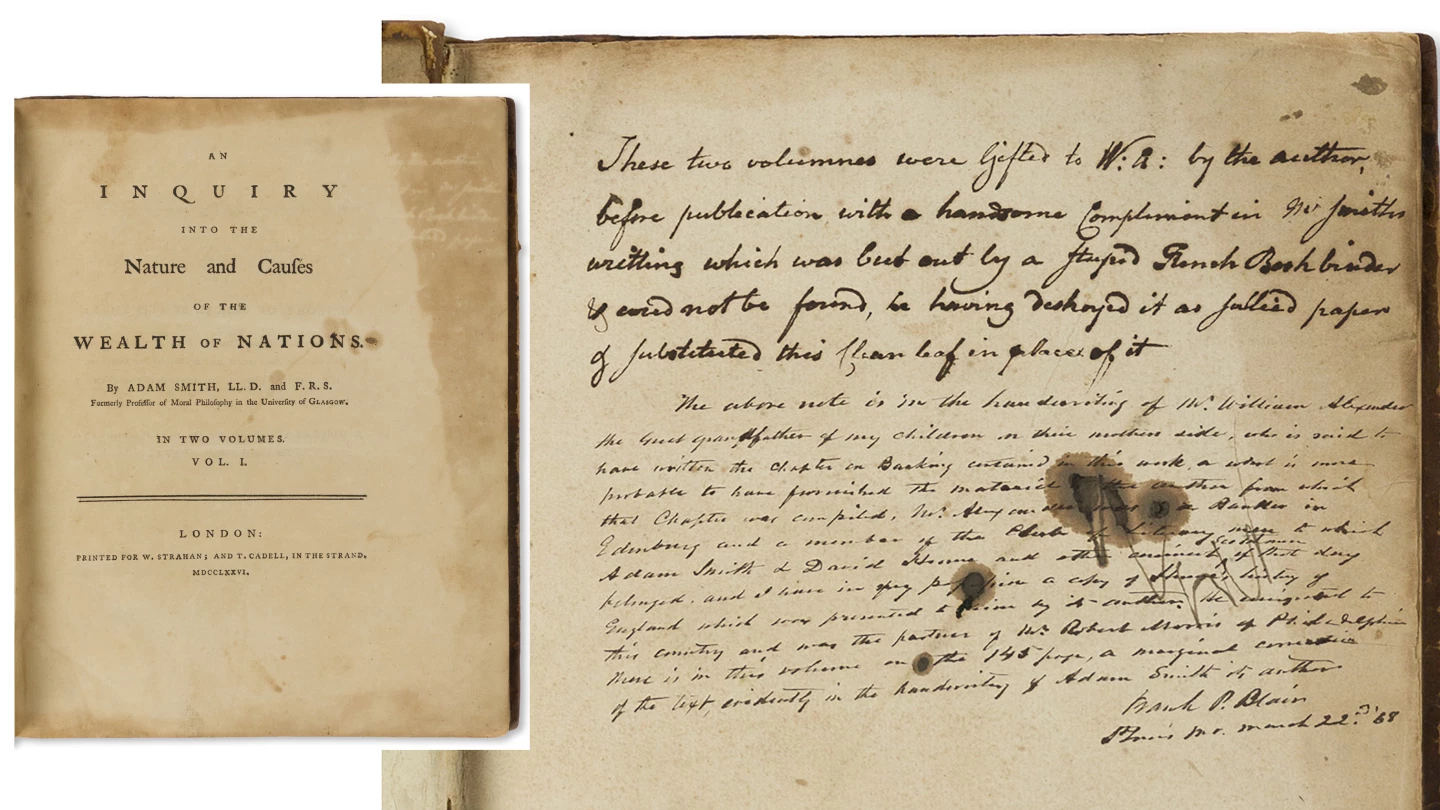 AN
INQUIRY
INTO THE
Nature and Cauſes
OF THE
WEALTH OF NATIONS.
By ADAM SMITH, LL. D. and F. R. S.
Formerly Profeſſor of Moral Philoſophy in the Univerſity of GLASGOW.
IN TWO VOLUMES.
VOL. I.
LONDON:
PRINTED FOR W. STRAHAN; AND T. CADELL, IN THE STRAND.
MDCCLXXVI.
These two volumnes were Gifted to W: A: by the author,
before publication with a handsome Compliment in Mr Smiths
writting which was cut out by a stupid French Bookbinder
& coud not be found, he having destroyed it as sullied paper
& substituted this Clean leaf in place of it
The above note is in the handwriting of Mr. William Alexander
the Great grandfather of my children on their mothers side, who is said to
have written the chapter on Banking contained in this work, or what is more
probable to have furnished the material to the author from which
that Chapter was compiled. Mr. Alexander was a Banker in
Edenburg and a member of the Club of literary men to which
Adam Smith & David Hume and other eminent Scotchmen of that day
belonged. and I have in my possession a copy of Hume's history of
England which was presented to him by its author. He emigrated to
this country and was the partner of Mr. Robert Morris of Philadelphia
There is in this volume on the 145 page, a marginal correction
of the text, evidently in the handwriting of Adam Smith its author
Frank P. Blair
St Louis Mo. march 22nd '68